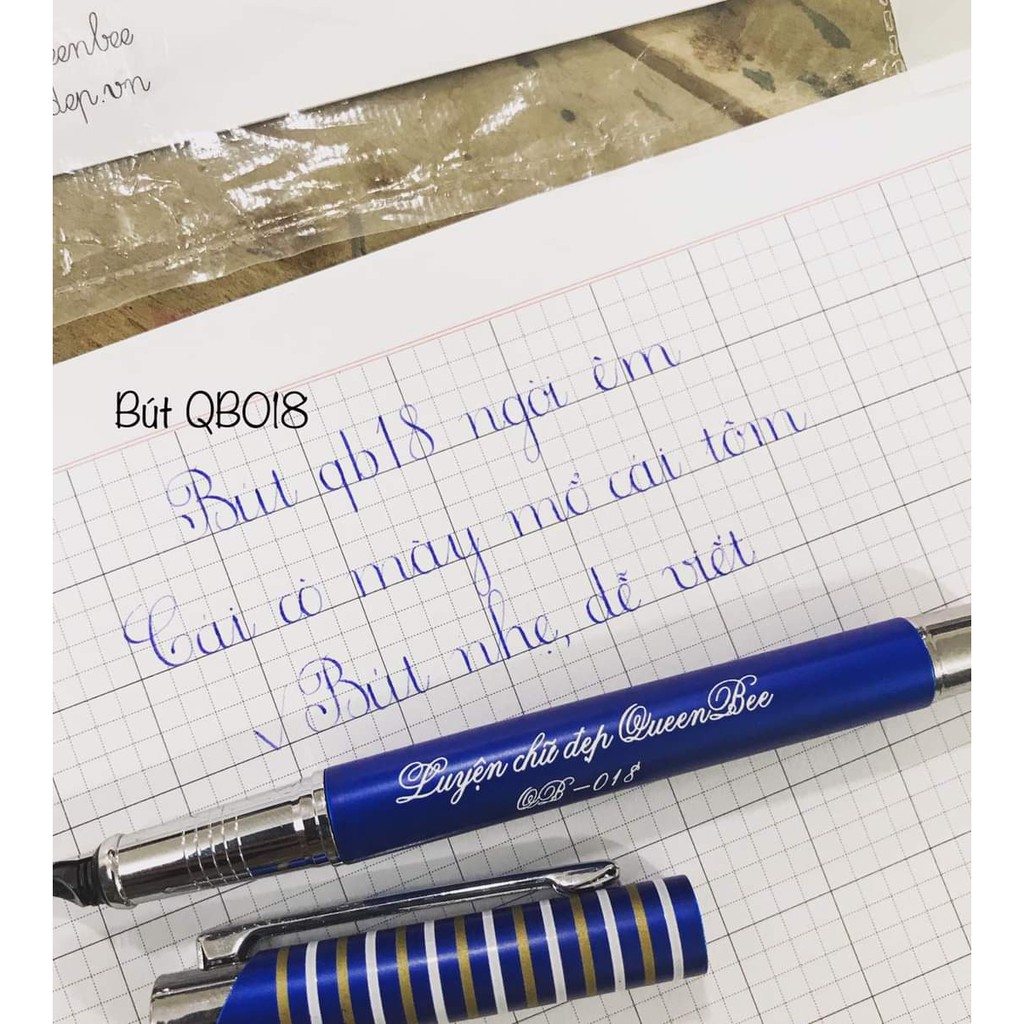 eenbee
dep.vn
Bút QB018
Bút qb18 ngòi êm
Cái cò mày mổ cái tôm
Bút nhẹ, dễ viết
Luyện chữ đẹp QueenBee
QB-018